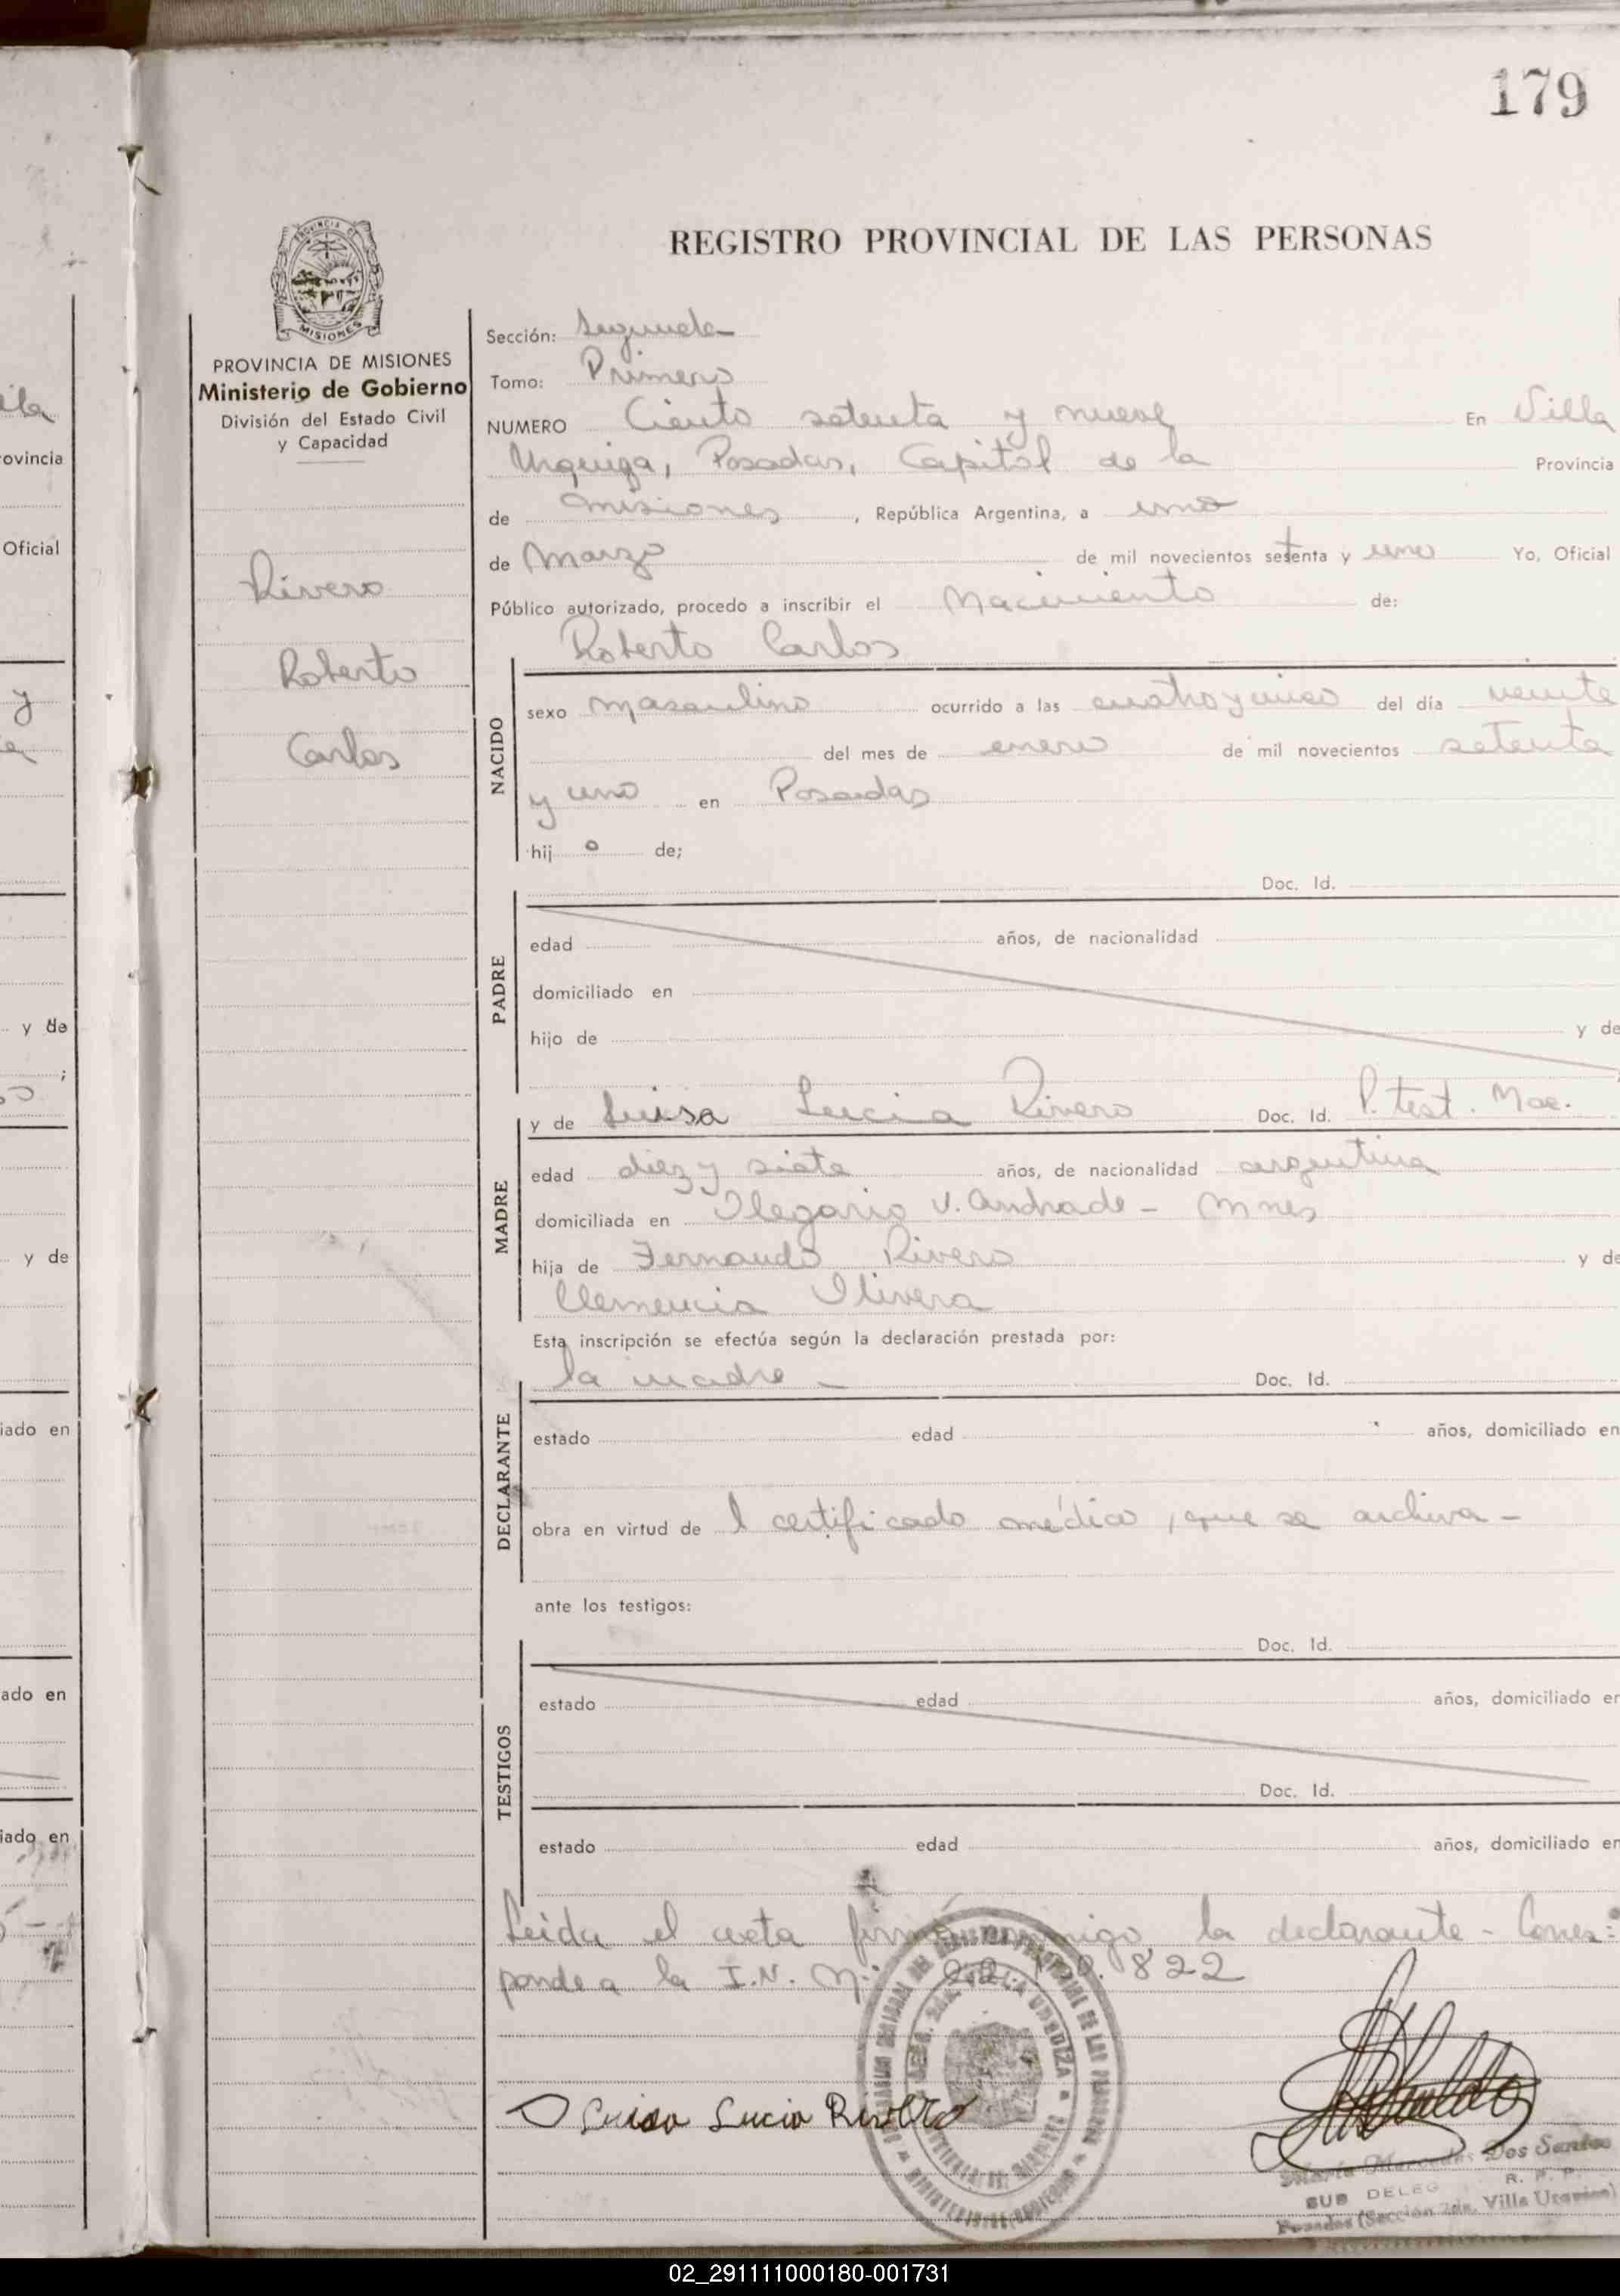 179
REGISTRO PROVINCIAL DE LAS PERSONAS
PROVINCIA DE MISIONES
Ministerio de Gobierno
División del Estado Civil
y Capacidad
Rivero
Roberto
Carlos
Sección: Segunda
Tomo: Primero
NUMERO Ciento setenta y nueve En Villa
Urquiza, Posadas, Capital de la Provincia
de Misiones, República Argentina, a uno
de Marzo de mil novecientos setenta y uno Yo, Oficial
Público autorizado, procedo a inscribir el Nacimiento de:
Roberto Carlos
NACIDO
sexo masculino ocurrido a las cuatro y cinco del día veinte
del mes de enero de mil novecientos setenta
y uno en Posadas
hijo de;
PADRE
Doc. Id.
edad años, de nacionalidad
domiciliado en
hijo de y de
MADRE
y de Luisa Lucia Rivero Doc. Id. P. test. Mae.
edad diez y siete años, de nacionalidad argentina
domiciliada en Olegario V. Andrade - Mnes
hija de Fernando Rivero y de
Clemencia Olivera
Esta inscripción se efectúa según la declaración prestada por:
la madre - Doc. Id.
DECLARANTE
estado edad años, domiciliado en
obra en virtud de l certificado médico, que se archiva -
ante los testigos:
TESTIGOS
Doc. Id.
estado edad años, domiciliado en
Doc. Id.
estado edad años, domiciliado en
Leida el acta firmó conmigo la declarante - Corres=
ponde a la I.N. Nº 822
Luisa Lucia Rivero
Maria Mercedes Dos Santos
R. P. P.
SUB DELEG
Posadas (Sección 2da. Villa Urquiza)
02_291111000180-001731